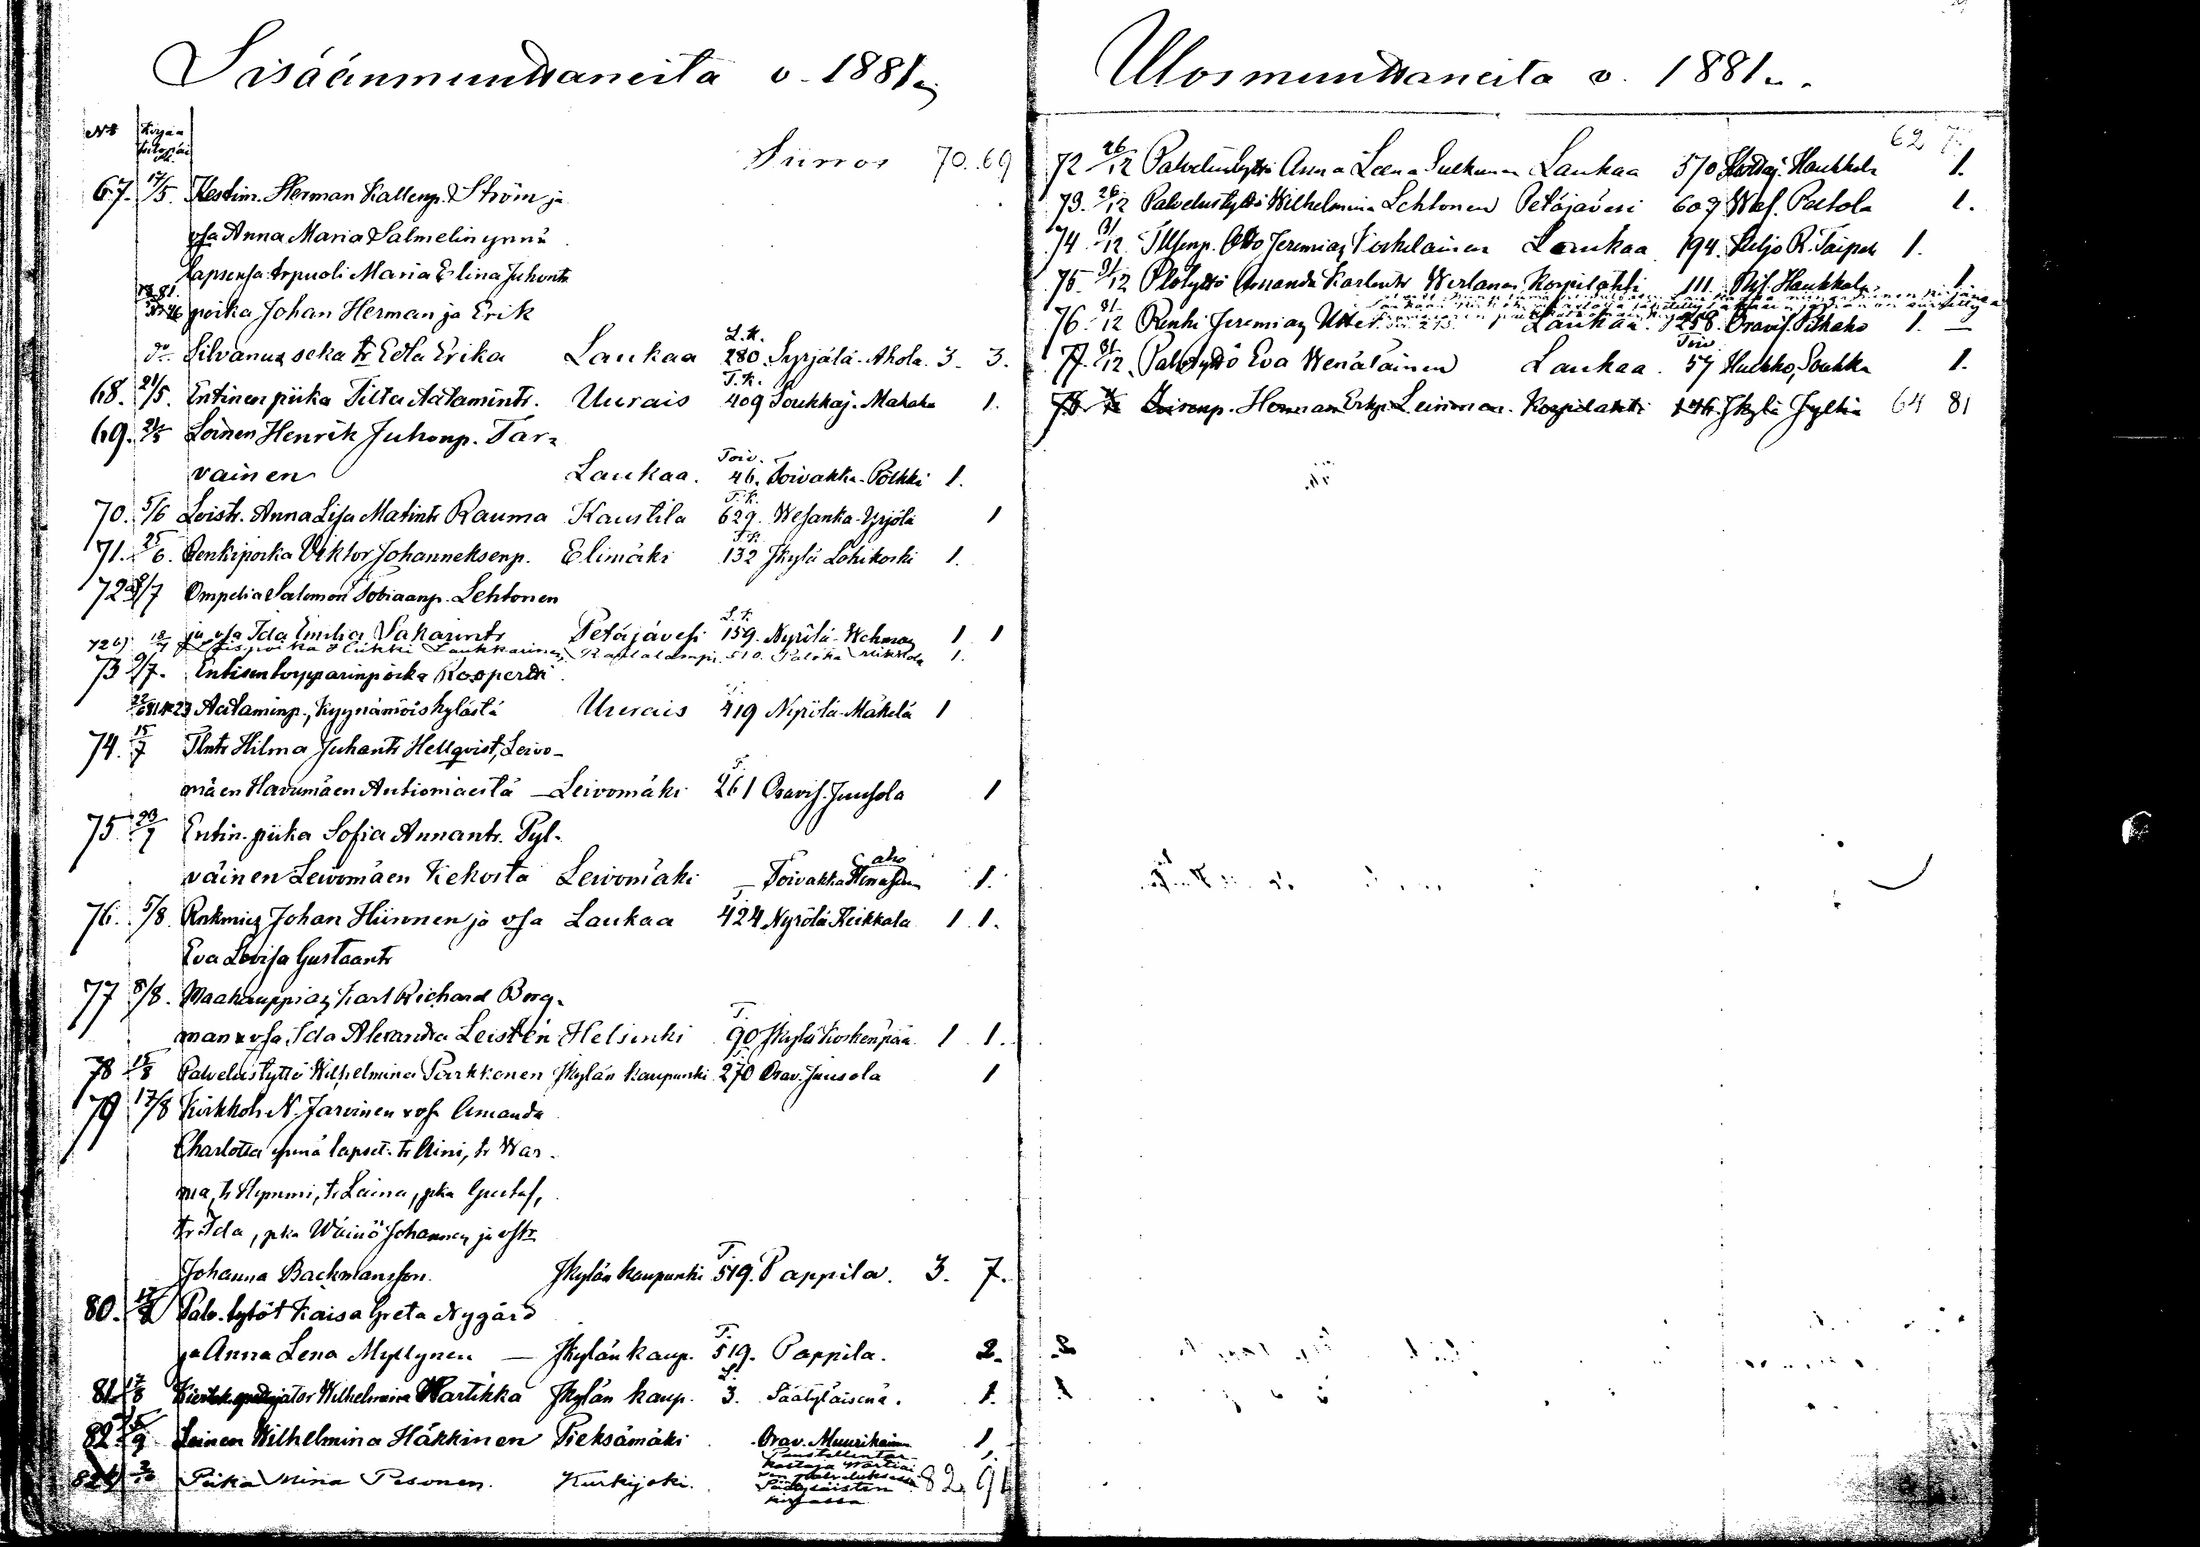 Sisäänmuuttaneita v. 1881.
No Kirjaan
Siirros 70. 69
67. 17/5. Kestim. Herman Kallenp. Ström ja
vsa Anna Maria Salmelin ynnä
lapsensa trpuoli Maria Elina Juhontr
poika Johan Herman ja Erik
Silvanus seka tr Edla Erika Laukaa L.K. 280. Syrjälä-Ahola. 3. 3.
68. 21/5. Entinen piika Tilta Aatamintr. Uurais T.K. 409 Soukkaj. Mahaka 1.
69. 21/5 Loinen Henrik Juhonp. Tar-
vainen Laukaa. Toiv. 46. Toivakka-Pölkki 1.
70. 5/6 Loistr. Anna Lisa Matintr Rauma Kaustila T.K. 629. Wesanka-Yrjölä 1
71. 25/6. Renkipoika Viktor Johanneksenp. Elimäki T.K. 132 Jkylä Lohikoski 1.
72a) 8/7 Ompelia Salomon Tobiaanp. Lehtonen
ja vsa Ida Emilia Sakarintr Petäjävesi 159. Nyrölä-Wehmas 1 1
72b) 18/7 poika Heikki Laukkarinen, Rautalampi. 510. Palokka 1.
73 9/7. Entisen torpparinpoika Kasperi
Aataminp., Kyynämöiskylästä Uurais 419 Nyrölä-Mäkelä 1
74. 15/7 Tlntr Hilma Juhantr Hellqvist, Leivo-
mäen Havumäen Antiomäestä — Leivomäki T. 261 Oravis. Juusola 1
75. 23/7 Entin. piika Sofia Annantr. Pyl-
väinen Leivomäen Kekosta Leivomäki — Toivakka aho 1.
76. 5/8. Rnkmies Johan Hiironen ja vsa Laukaa T. 424 Nyrölä Heikkala 1 1.
Eva Lovisa Gustaantr
77 8/8. Maakauppias Karl Richard Berg-
man x vsa Ida Alexandra Leistén Helsinki T. 90 Jkylä Koskenpää 1 1.
78 15/8 Palvelustyttö Wilhelmina Parkkonen Jkylän kaupunki 270 Orav. Juusola 1
79 17/8 Kirkkoh. N. Järvinen x vsa Amanda
Charlotta ynnä lapset. tr Aini, tr War-
ma, tr Hymmi, tr Laina, pka Gustaf,
tr Ida, pka Wäinö Johannes ja
Johanna Backmansson. Jkylän kaupunki T. 519. Pappila. 3. 7.
80. 17/8 Palv. tytöt Kaisa Greta Nygård
ja Anna Lena Myllynen — Jkylän kaup. T. 519. Pappila. 2.
81. 17/8 Wilhelmina Wartikka Jkylän kaup. 3. Säätyläisenä. 1.
82. 15/9 Loinen Wilhelmina Häkkinen Pieksämäki Orav. Muurikainen 1
82b) Piika Mina Pesonen. Kurkijoki. Säätyläisten kirjassa 1. 82. 91
Ulosmuuttaneita v. 1881.
62
72 26/12 Palvelustyttö Anna Leena Sulkunen Laukaa 570 Haukkala 1.
73. 26/12 Palvelustyttö Wilhelmina Lehtonen Petäjävesi 609 Wes. Paltola 1.
74 31/12. Tllsenp. Otto Jeremias Kinkelainen Laukaa 194. Keljo R. Taipale 1.
75. 31/12 Plstyttö Amanda Karlintr Werlanen Korpilahti 111. Haukkala 1.
76. 31/12 Renki Jeremias Laukaa. 258. Oravis. Pitkäaho 1. —
77. 31/12. Palvtyttö Eva Wenäläinen Laukaa. Toiv 57 Huikko, Soukka 1.
78. Herman Erkp. Leinonen. Korpilahti 146. Jkylä 64 81